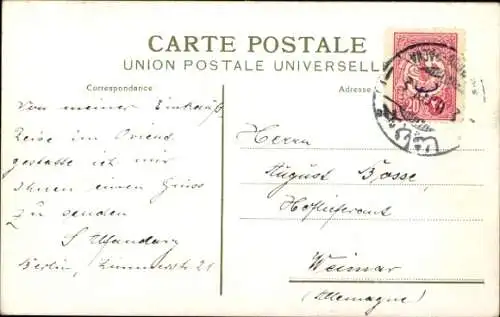 CARTE POSTALE
UNION POSTALE UNIVERSELLE
Correspondance
Adresse
20
Von meiner Einkaufs
Reise im Orient
gestatte ich mir
Ihnen einen Gruss
zu senden
S Alfandary
Berlin, Zimmerstr 21
Herrn
August Bosse,
Hoflieferant
Weimar
(Allemagne)